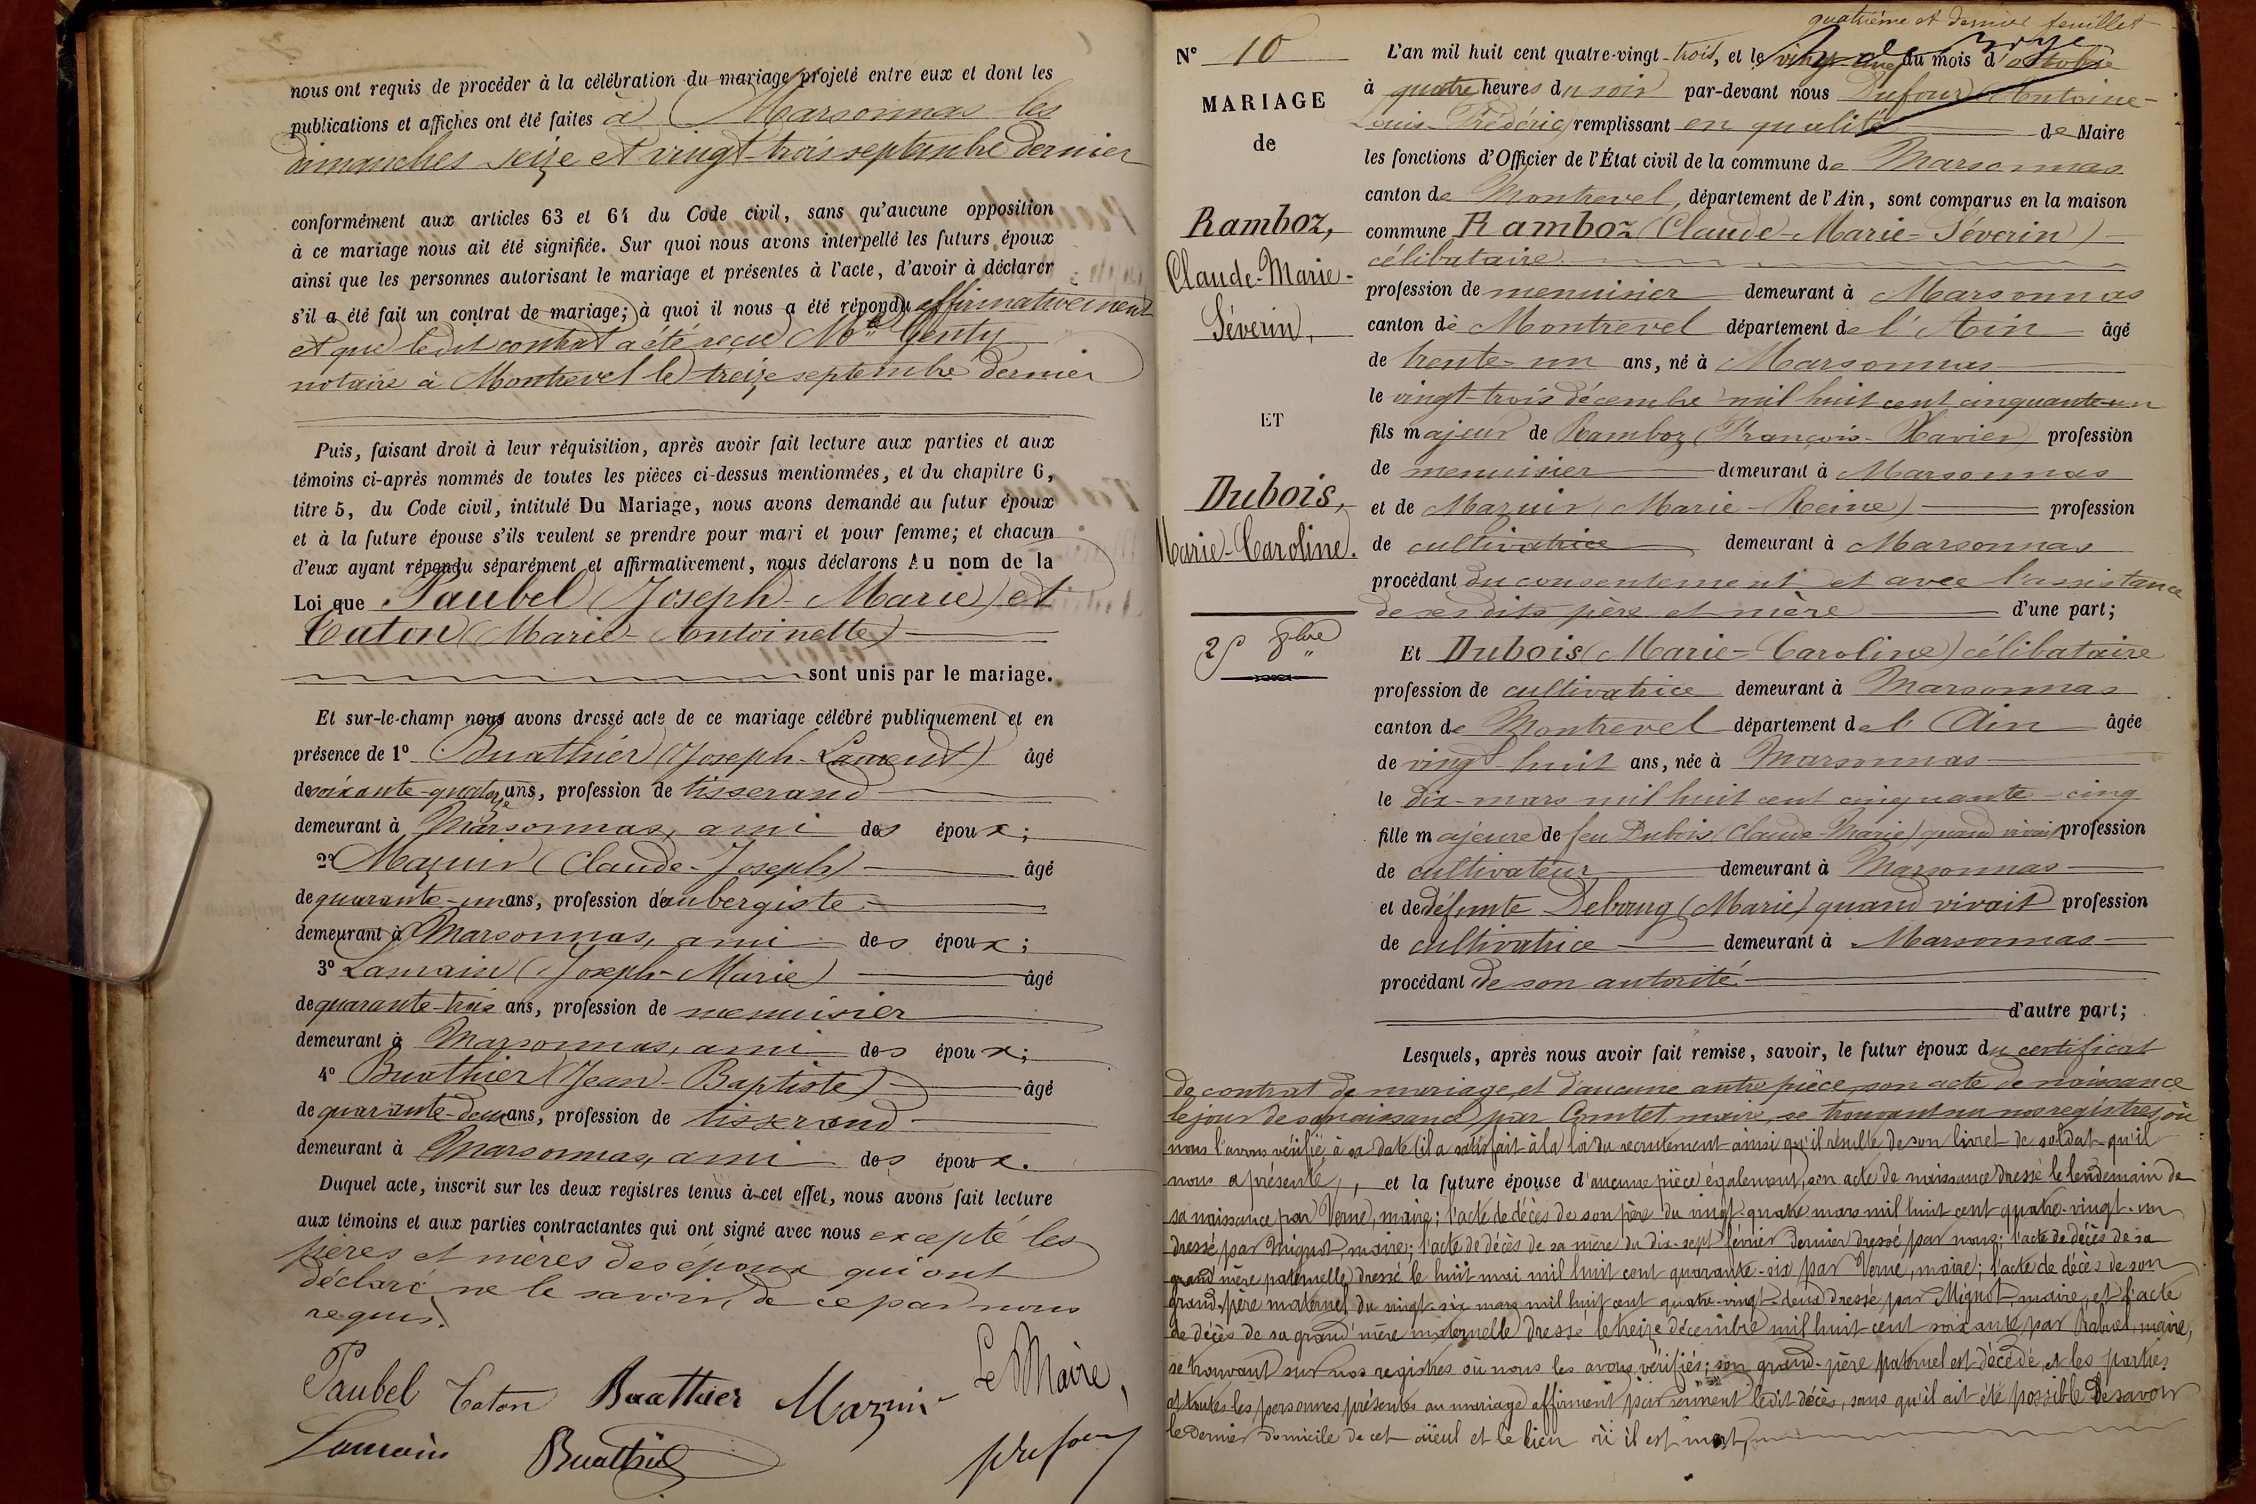 nous ont requis de procéder à la célébration du mariage projeté entre eux et dont les
publications et affiches ont été faites à Marsonnas les
dimanches seize et vingt-trois septembre dernier
conformément aux articles 63 et 64 du Code civil, sans qu'aucune opposition
à ce mariage nous ait été signifiée. Sur quoi nous avons interpellé les futurs époux
ainsi que les personnes autorisant le mariage et présentes à l'acte, d'avoir à déclarer
s'il a été fait un contrat de mariage; à quoi il nous a été répondu affirmativement
et que ledit contrat a été reçu Mtre Genty
notaire à Montrevel le treize septembre dernier
Puis, faisant droit à leur réquisition, après avoir fait lecture aux parties et aux
témoins ci-après nommés de toutes les pièces ci-dessus mentionnées, et du chapitre 6,
titre 5, du Code civil, intitulé Du Mariage, nous avons demandé au futur époux
et à la future épouse s'ils veulent se prendre pour mari et pour femme; et chacun
d'eux ayant répondu séparément et affirmativement, nous déclarons Au nom de la
Loi que Paubel (Joseph-Marie) et
Caton (Marie-Antoinette)
sont unis par le mariage.
Et sur-le-champ nous avons dressé acte de ce mariage célébré publiquement et en
présence de 1° Buathier (Joseph-Laurent) âgé
de soixante-quatorze ans, profession de tisserand
demeurant à Marsonnas, ami des époux;
2° Mazuir (Claude-Joseph) âgé
de quarante-un ans, profession d'aubergiste
demeurant à Marsonnas, ami des époux;
3° Lamain (Joseph-Marie) âgé
de quarante-trois ans, profession de menuisier
demeurant à Marsonnas, ami des époux;
4° Buathier (Jean-Baptiste) âgé
de quarante-deux ans, profession de tisserand
demeurant à Marsonnas, ami des époux.
Duquel acte, inscrit sur les deux registres tenus à cet effet, nous avons fait lecture
aux témoins et aux parties contractantes qui ont signé avec nous excepté les
pères et mères des époux qui ont
déclaré ne le savoir, de ce par nous
requis.
Paubel Caton Buathier Mazuir Le Maire,
Lamain Buathier Dufour
quatrième et dernier feuillet
N° 10
MARIAGE
de
Ramboz,
Claude-Marie-
Séverin,
ET
Dubois,
Marie-Caroline.
25 8bre
L'an mil huit cent quatre-vingt-trois, et le vingt-cinq du mois d'octobre
à quatre heures du soir par-devant nous Dufour (Antoine-
Louis-Frédéric) remplissant en qualité de Maire
les fonctions d'Officier de l'État civil de la commune de Marsonnas
canton de Montrevel, département de l'Ain, sont comparus en la maison
commune Ramboz (Claude-Marie-Séverin)
célibataire
profession de menuisier demeurant à Marsonnas
canton de Montrevel département de l'Ain âgé
de trente-un ans, né à Marsonnas
le vingt-trois décembre mil huit cent cinquante-un
fils majeur de Ramboz (François-Xavier) profession
de menuisier demeurant à Marsonnas
et de Mazuir (Marie-Reine) profession
de cultivatrice demeurant à Marsonnas
procédant du consentement et avec l'assistance
de ses dits père et mère d'une part;
Et Dubois (Marie-Caroline) célibataire
profession de cultivatrice demeurant à Marsonnas
canton de Montrevel département de l'Ain âgée
de vingt-huit ans, née à Marsonnas
le dix-mars mil huit cent cinquante-cinq
fille majeure de feu Dubois (Claude-Marie) quand vivait profession
de cultivateur demeurant à Marsonnas
et de défunte Debourg (Marie) quand vivait profession
de cultivatrice demeurant à Marsonnas
procédant de son autorité
d'autre part;
Lesquels, après nous avoir fait remise, savoir, le futur époux du certificat
de contrat de mariage, et d'aucune autre pièce son acte de naissance
le jour de sa naissance, par Comtet, maire, se trouvant sur nos registres, où
nous l'avons vérifié, à sa date (il a satisfait à la loi du recrutement ainsi qu'il résulte de son livret de soldat qu'il
nous a présenté), et la future épouse d'aucune pièce également, son acte de naissance dressé le lendemain de
sa naissance par Verne, maire; l'acte de décès de son père du vingt-quatre mars mil huit cent quatre-vingt-un
dressé par Mignot, maire; l'acte de décès de sa mère du dix-sept février dernier dressé par nous; l'acte de décès de sa
grand'mère paternelle dressé le huit mai mil huit cent quarante-six par Verne, maire; l'acte de décès de son
grand-père maternel du vingt-six mars mil huit cent quatre-vingt-deux dressé par Mignot, maire, et l'acte
de décès de sa grand'mère maternelle dressé le treize décembre mil huit cent soixante par Rabuel, maire,
se trouvant sur nos registres où nous les avons vérifiés; son grand-père paternel est décédé, et les parties
et toutes les personnes présentes au mariage affirment par serment ledit décès, sans qu'il ait été possible de savoir
le dernier domicile de cet aïeul et le lieu où il est mort,